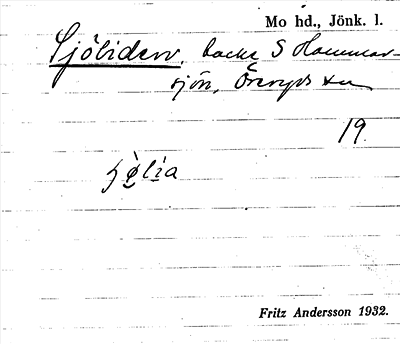 Mo hd., Jönk. l.
Sjöliden, backe S Hammar-
sjön, Öreryds sn
19
Fritz Andersson 1932.